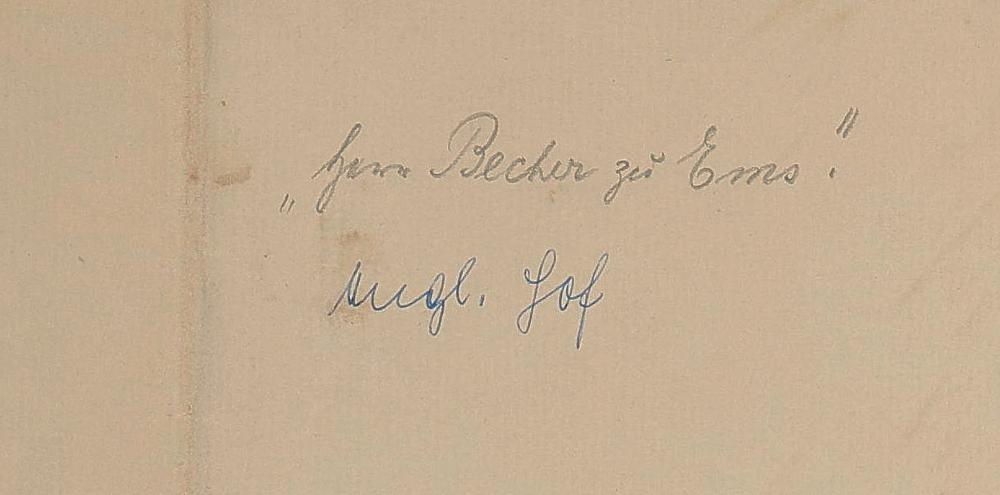 „Herrn Becher zu Ems."
Engl. Hof